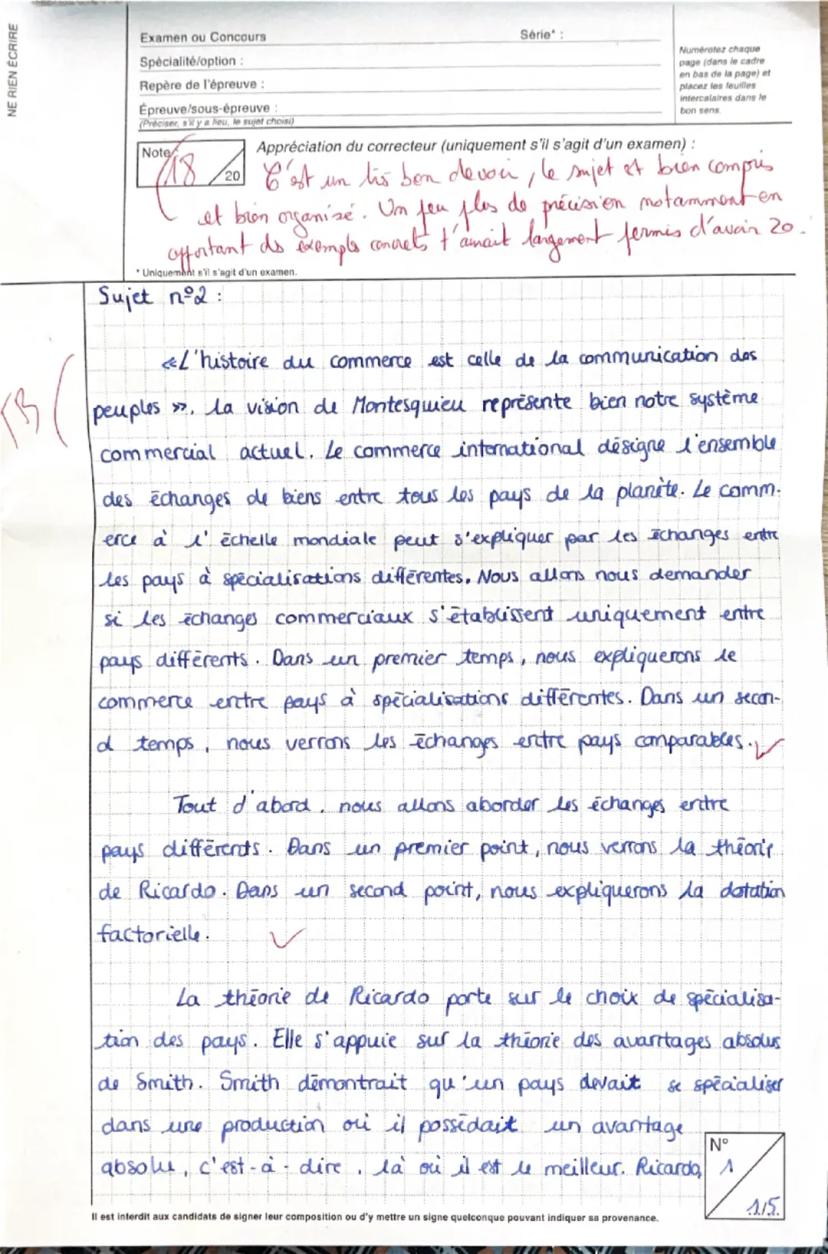 NE RIEN ÉCRIRE
Examen ou Concours Série* :
Spécialité/option :
Repère de l'épreuve :
Épreuve/sous-épreuve :
(Préciser, s'il y a lieu, le sujet choisi)
Numérotez chaque
page (dans le cadre
en bas de la page) et
placez les feuilles
intercalaires dans le
bon sens.
Note : 18 / 20
Appréciation du correcteur (uniquement s'il s'agit d'un examen) :
C'est un très bon devoir, le sujet est bien compris
et bien organisé. Un peu plus de précision notamment en
apportant des exemples concrets t'aurait largement permis d'avoir 20.
* Uniquement s'il s'agit d'un examen.
Sujet n°2 :
TB
«L'histoire du commerce est celle de la communication des
peuples ». La vision de Montesquieu représente bien notre système
commercial actuel. Le commerce international désigne l'ensemble
des échanges de biens entre tous les pays de la planète. Le comm-
erce à l'échelle mondiale peut s'expliquer par les échanges entre
les pays à spécialisations différentes. Nous allons nous demander
si les échanges commerciaux s'établissent uniquement entre
pays différents. Dans un premier temps, nous expliquerons le
commerce entre pays à spécialisations différentes. Dans un secon-
d temps, nous verrons les échanges entre pays comparables.
Tout d'abord, nous allons aborder les échanges entre
pays différents. Dans un premier point, nous verrons la théorie
de Ricardo. Dans un second point, nous expliquerons la dotation
factorielle.
La théorie de Ricardo porte sur le choix de spécialisa-
tion des pays. Elle s'appuie sur la théorie des avantages absolus
de Smith. Smith démontrait qu'un pays devait se spécialiser
dans une production où il possédait un avantage
absolu, c'est-à-dire, là où il est le meilleur. Ricardo,
N°
1
1/5.
Il est interdit aux candidats de signer leur composition ou d'y mettre un signe quelconque pouvant indiquer sa provenance.